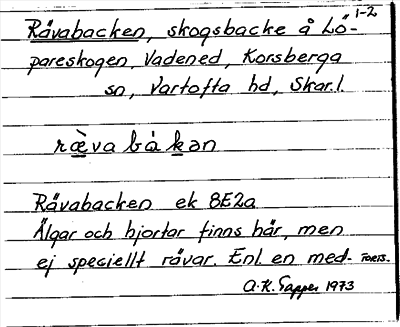 1-2
Rävabacken, skogsbacke å Lö-
pareskogen, Vadened, Korsberga
sn, Vartofta hd, Skar. l.
ræ̀va bákən
Rävabacken ek 8E2a
Älgar och hjortar finns här, men
ej speciellt rävar. Enl. en med- forts.
A.K. Tapper 1973